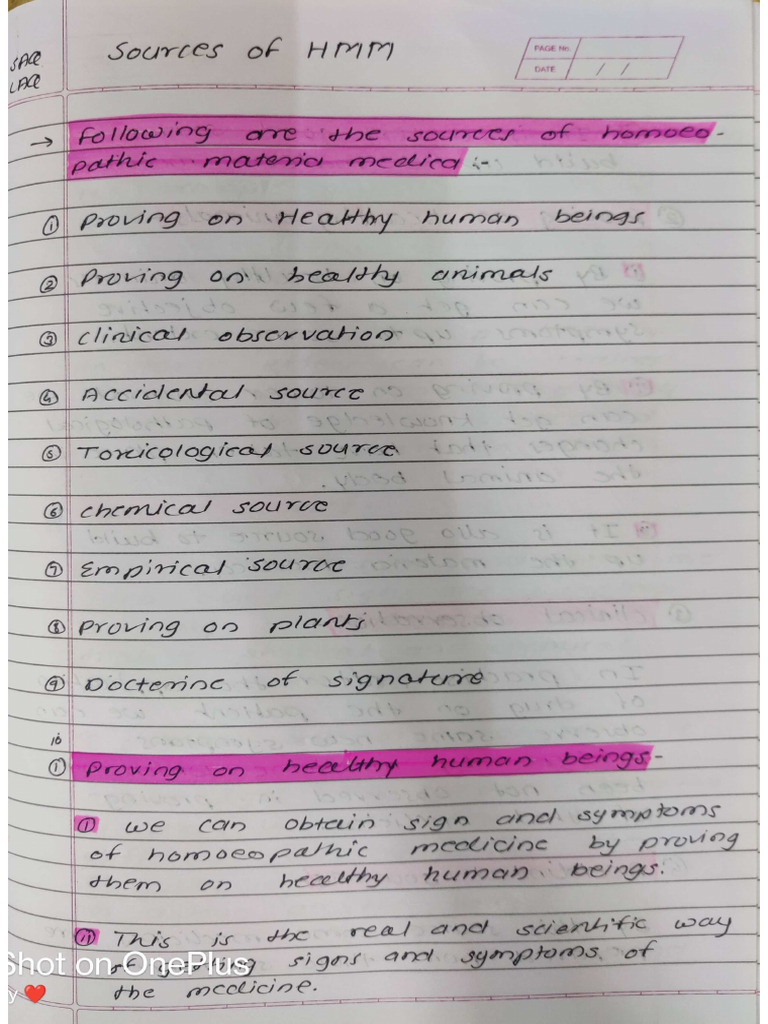 SAQ
LAQ
Sources of HMM
PAGE No.
DATE / /
→ Following are the sources of homoeo-
pathic materia medica :-
① Proving on Healthy human beings
② Proving on healthy animals
③ clinical observation
④ Accidental source
⑤ Toxicological source
⑥ chemical source
⑦ Empirical source
⑧ Proving on plants
⑨ Docterine of signature
10
① Proving on healthy human beings-
① we can obtain sign and symptoms
of homoeopathic medicine by proving
them on healthy human beings.
⑪ This is the real and scientific way
of signs and symptoms of
the medicine.
Shot on OnePlus
y ❤️